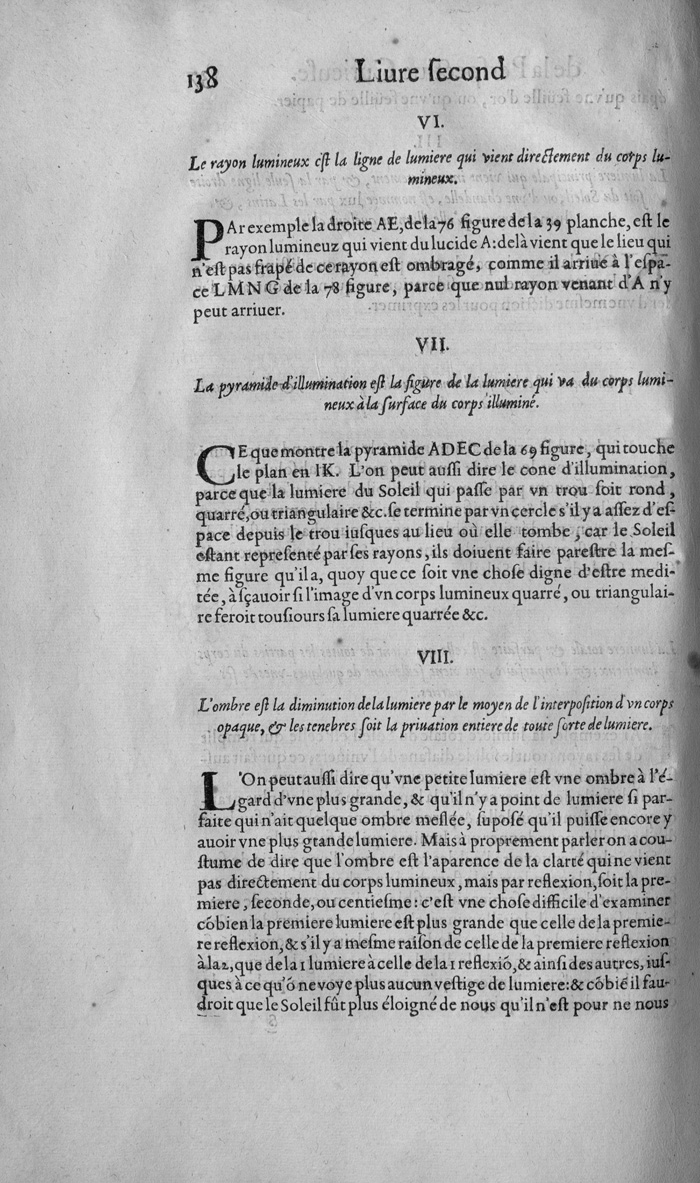 138 Liure ſecond
VI.
Le rayon lumineux eſt la ligne de lumiere qui vient directement du corps lu-
mineux.
PAr exemple la droite AE, de la 76 figure de la 39 planche, eſt le
rayon lumineuz qui vient du lucide A: delà vient que le lieu qui
n'eſt pas frapé de ce rayon eſt ombragé, comme il arriue à l'eſpa-
ce LMNG de la 78 figure, parce que nul rayon venant d'A n'y
peut arriuer.
VII.
La pyramide d'illumination eſt la figure de la lumiere qui va du corps lumi-
neux à la ſurface du corps illuminé.
CE que montre la pyramide ADEC de la 69 figure, qui touche
le plan en IK. L'on peut auſſi dire le cone d'illumination,
parce que la lumiere du Soleil qui paſſe par vn trou ſoit rond,
quarré, ou triangulaire &c. ſe termine par vn cercle s'il y a aſſez d'eſ-
pace depuis le trou iuſques au lieu où elle tombe, car le Soleil
eſtant repreſenté par ſes rayons, ils doiuent faire pareſtre la meſ-
me figure qu'il a, quoy que ce ſoit vne choſe digne d'eſtre medi-
tée, à ſçauoir ſi l'image d'vn corps lumineux quarré, ou triangulai-
re feroit touſiours ſa lumiere quarrée &c.
VIII.
L'ombre eſt la diminution de la lumiere par le moyen de l'interpoſition d'vn corps
opaque, & les tenebres ſoit la priuation entiere de toute ſorte de lumiere.
L'On peut auſſi dire qu'vne petite lumiere eſt vne ombre à l'é-
gard d'vne plus grande, & qu'il n'y a point de lumiere ſi par-
faite qui n'ait quelque ombre meſlée, ſupoſé qu'il puiſſe encore y
auoir vne plus gtande lumiere. Mais à proprement parler on a cou-
ſtume de dire que l'ombre eſt l'aparence de la clarté qui ne vient
pas directement du corps lumineux, mais par reflexion, ſoit la pre-
miere, ſeconde, ou centieſme: c'eſt vne choſe difficile d'examiner
cóbien la premiere lumiere eſt plus grande que celle de la premie-
re reflexion, & s'il y a meſme raiſon de celle de la premiere reflexion
à la 2, que de la 1 lumiere à celle de la 1 reflexió, & ainſi des autres, iuſ-
ques à ce qu'ó ne voye plus aucun veſtige de lumiere: & cóbié il fau-
droit que le Soleil fût plus éloigné de nous qu'il n'eſt pour ne nous